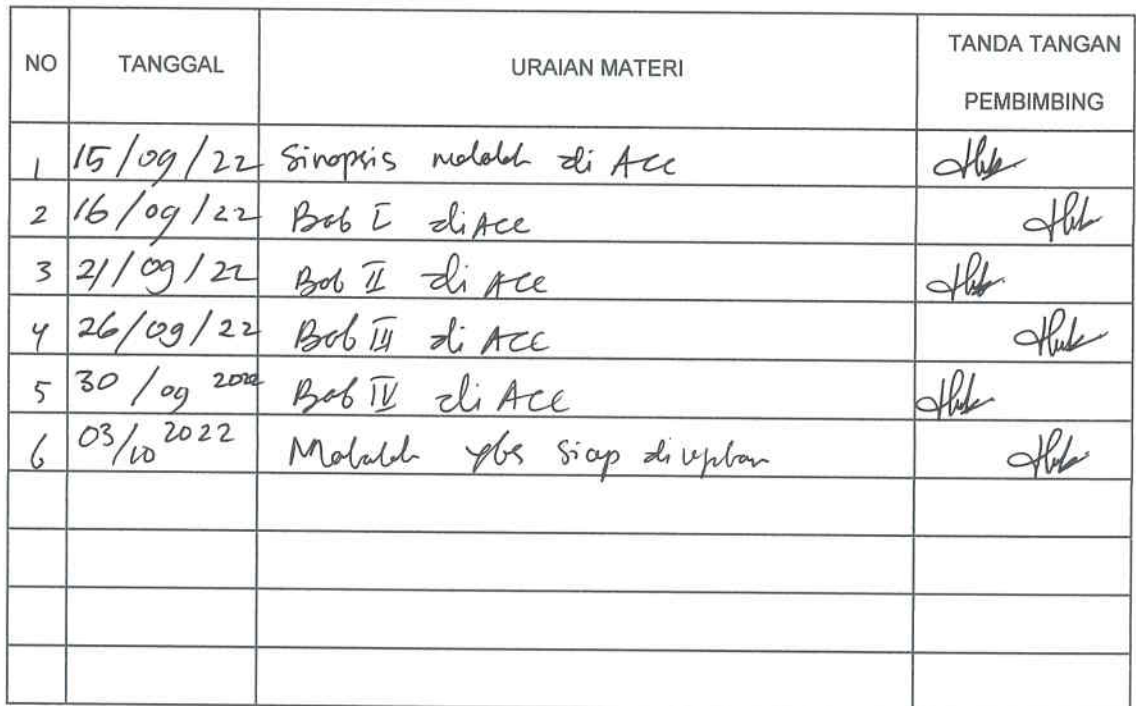 NO TANGGAL URAIAN MATERI TANDA TANGAN PEMBIMBING
1 15/09/22 Sinopsis makalah di Acc
2 16/09/22 Bab I di Acc
3 21/09/22 Bab II di Acc
4 26/09/22 Bab III di Acc
5 30/09 2022 Bab IV di Acc
6 03/10 2022 Makalah ybs siap diujikan